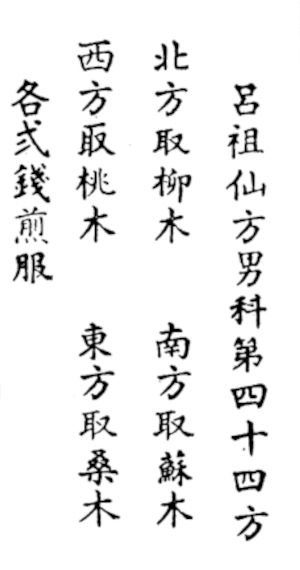 呂祖仙方男科第四十四方
北方取柳木 南方取蘇木
西方取桃木 東方取桑木
各弍錢煎服